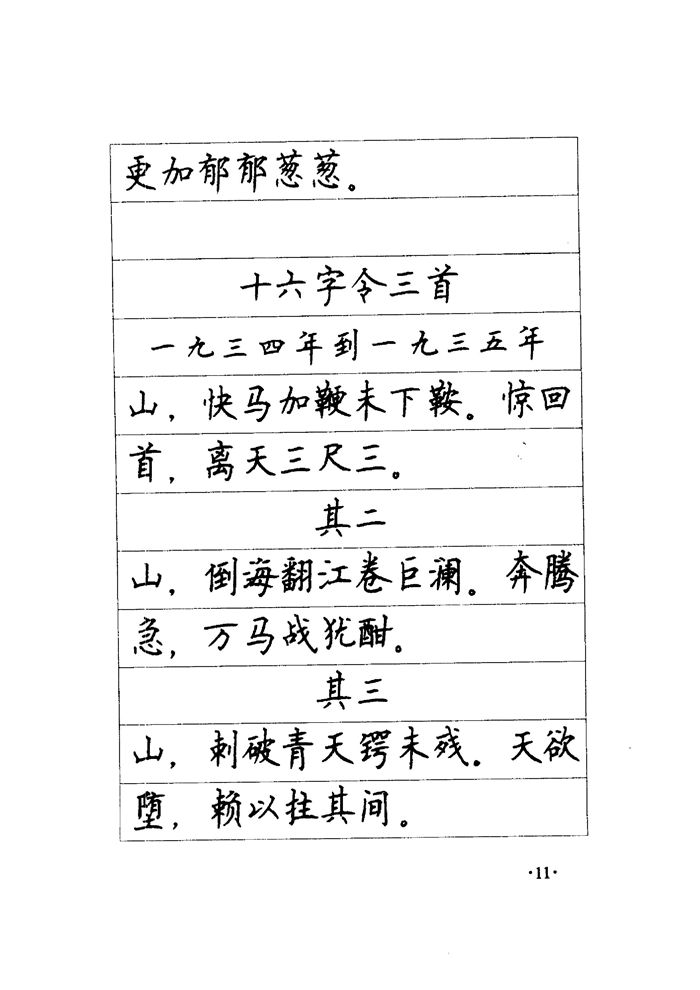 更加郁郁葱葱。
十六字令三首
一九三四年到一九三五年
山，快马加鞭未下鞍。惊回
首，离天三尺三。
其二
山，倒海翻江卷巨澜。奔腾
急，万马战犹酣。
其三
山，刺破青天锷未残。天欲
堕，赖以拄其间。
·11·